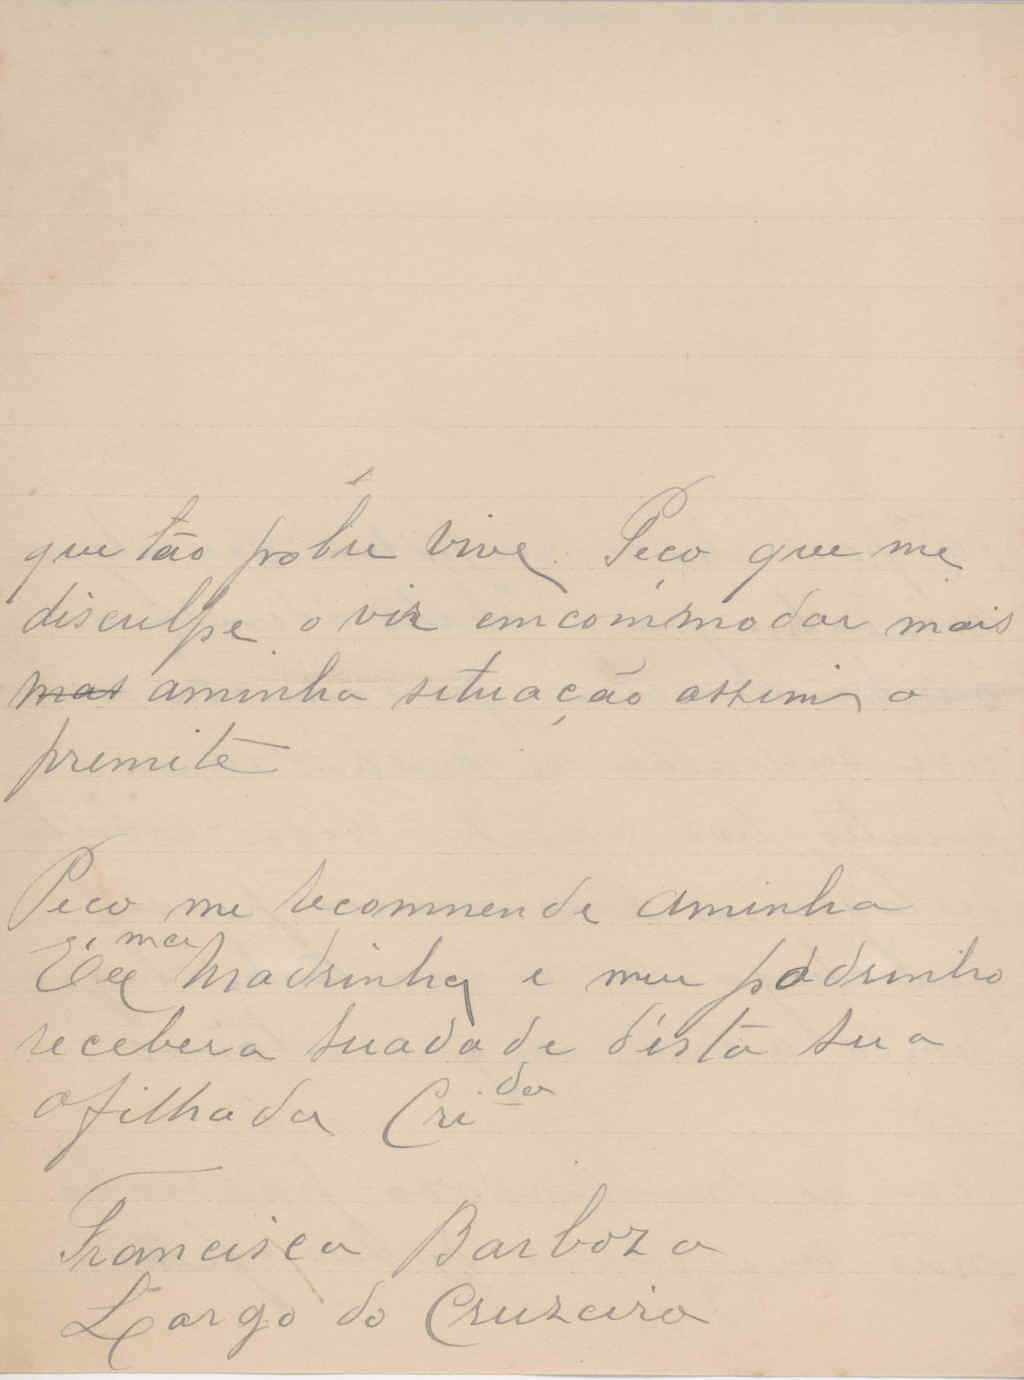 que tão pobre vive. Peço que me
disculpe o vir emcommodar mais
mas aminha situação assim o
premite
Peco me recommende aminha
Madrinha e meu padrinho
recebera suadade désta sua
afilhada Cri.da
Francisca Barboza
Largo do Cruzeiro